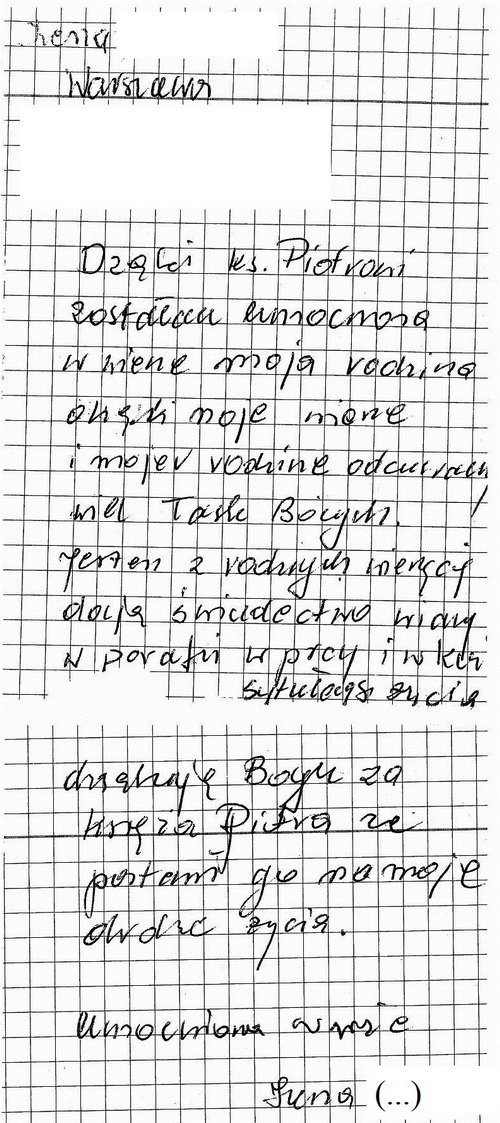 Warszawa
Dzęki ks. Piotrowi
zostałam umocniona
w wierze moja rodzina
dzięki moje wierze
i mojej rodzinie
wiel Łask Bożych.
Jestem z rodziny wierzącej
daję świadectwo wiary
w parafii w pracy i w każ
sytuacji życia
dziękuję Bogu za
księza Piotra ze
postawił go na moje
drodze życia.
Umocniona w wierze
(...)